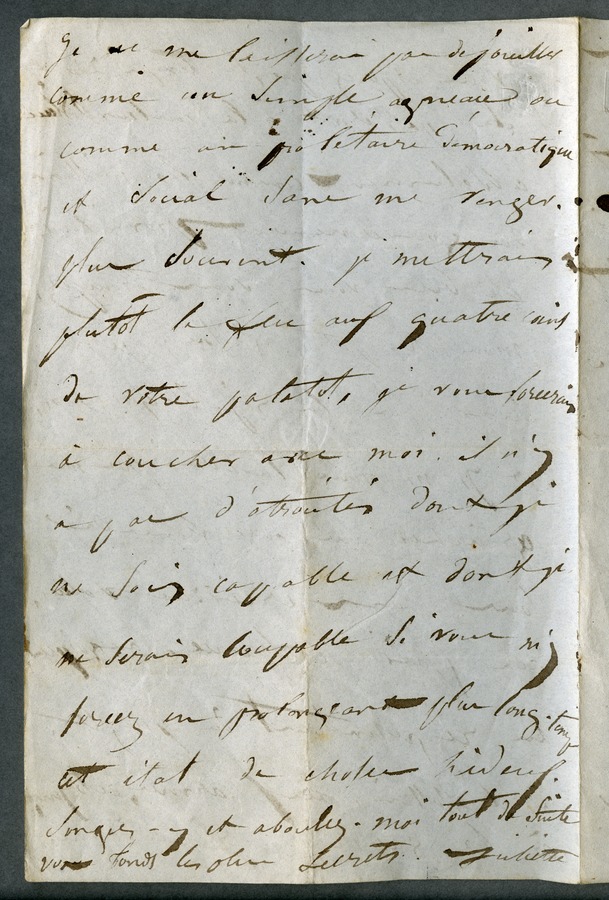 Je ne me laisserai pas dépouiller
comme un simple agneau ou
comme un prolétaire démocratique
et social sans me venger.
plus souvent. je mettrais
plutôt le feu aux quatre coins
de votre paletot, je vous forcerais
à coucher avec moi. il n'y
a pas d'atrocités dont je
ne sois capable et dont je
ne serais coupable si vous m'y
forcez en prolongeant plus longtemps
cet état de choses hideux.
Songez-y et aboulez-moi tout de suite
vos fonds les plus secrets. Juliette